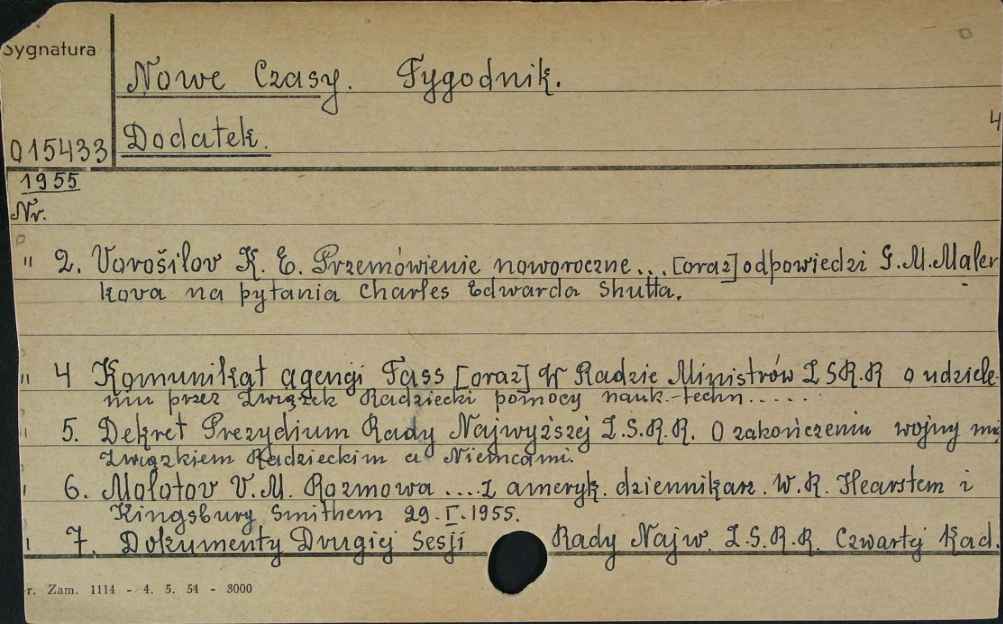 Sygnatura
Nowe Czasy. Tygodnik.
4
Dodatek.
015433
1955
Nr.
" 2. Vorošilov K. E. Przemówienie noworoczne... [oraz] odpowiedzi G. M. Malen
kova na pytania Charles Edwarda Shutta.
" 4 Komunikat agencji Tass [oraz] W Radzie Ministrów ZSR.R o udziele-
niu przez Związek Radziecki pomocy nauk.-techn.....
" 5. Dekret Prezydium Rady Najwyższej Z.S.R.R. O zakończeniu wojny mię
Związkiem Radzieckim a Niemcami.
" 6. Mołotov V. M. Rozmowa .... z ameryk. dziennikarz. W. R. Hearstem i
Kingsbury Smithem 29.I.1955.
" 7. Dokumenty Drugiej Sesji Rady Najw. Z.S.R.R. Czwartej Kad.
r. Zam. 1114 - 4. 5. 54 - 3000